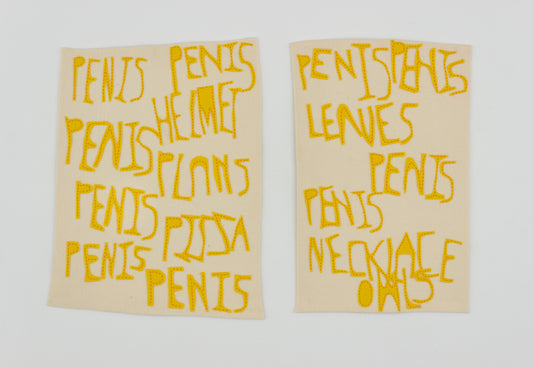 PENIS PENIS
HELMET
PENIS
PLANS
PENIS
PIZZA
PENIS
PENIS
PENIS PENIS
LEAVES
PENIS
PENIS
NECKLACE
OWLS